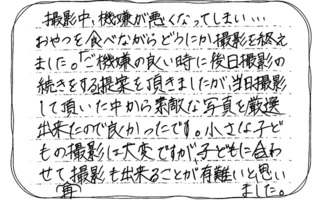 撮影中、機嫌が悪くなってしまい…
おやつを食べながらどうにか撮影を終え
ました。「ご機嫌の良い時に後日撮影の
続きをする提案を頂きましたが、当日撮影
して頂いた中から素敵な写真を厳選
出来たので良かったです。小さな子ど
もの撮影は大変ですが、子どもに合わ
せて再撮影も出来ることが有難いと思い
ました。